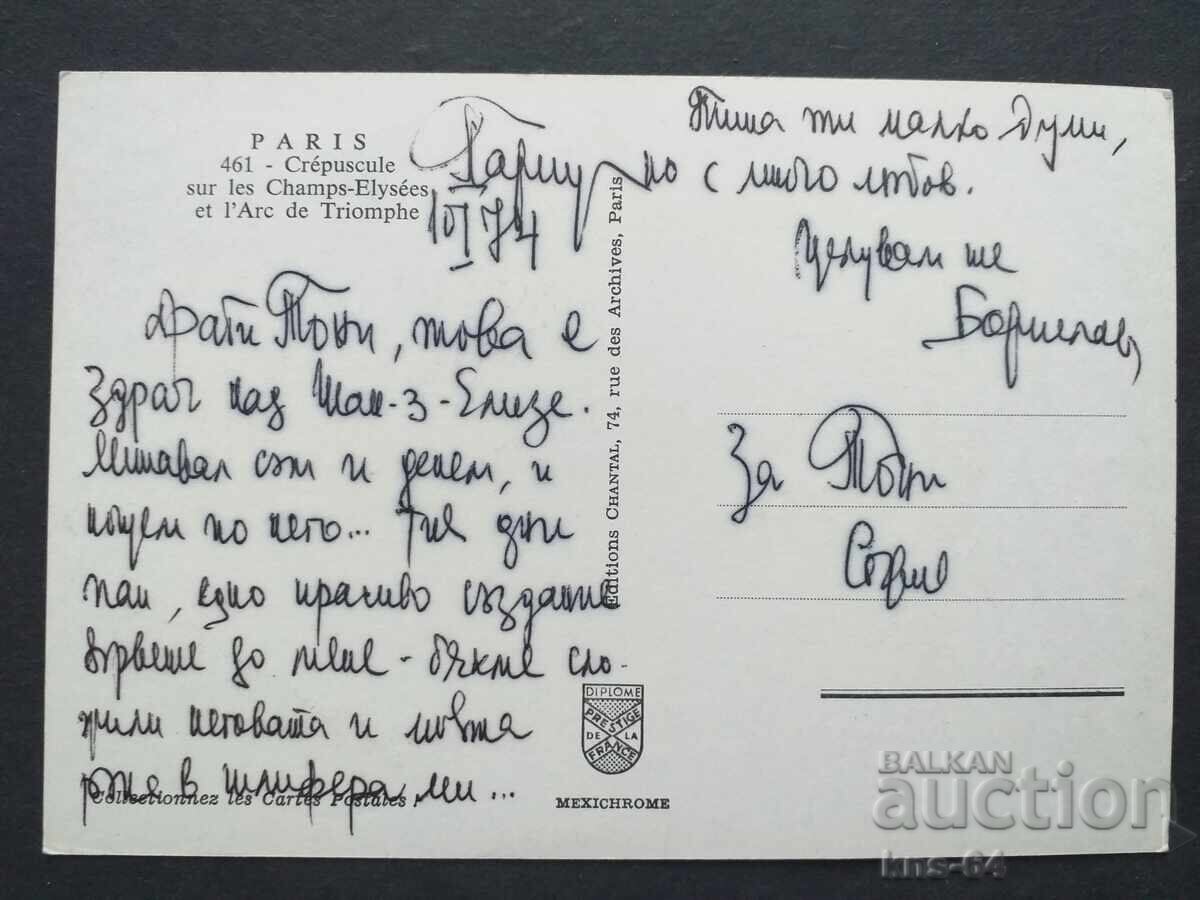 PARIS
461 - Crépuscule
sur les Champs-Elysées
et l'Arc de Triomphe
Париж
10 I 74
Драги Тони, това е
здрач над Шан-з-Елизе.
Минавал съм и денем, и
нощем по него... Тия дни
пак, едно красиво създание
вървеше до мене - бяхме сло-
жили неговата и моята
ръка в шлифера ми...
Пиша ти малко думи,
но с много любов.
Целувам те
Борислав
За Тони
София
Editions CHANTAL, 74, rue des Archives, Paris
DIPLOME
PRESTIGE
DE LA
FRANCE
Collectionnez les Cartes Postales !
MEXICHROME
BALKAN
auction
kns-64